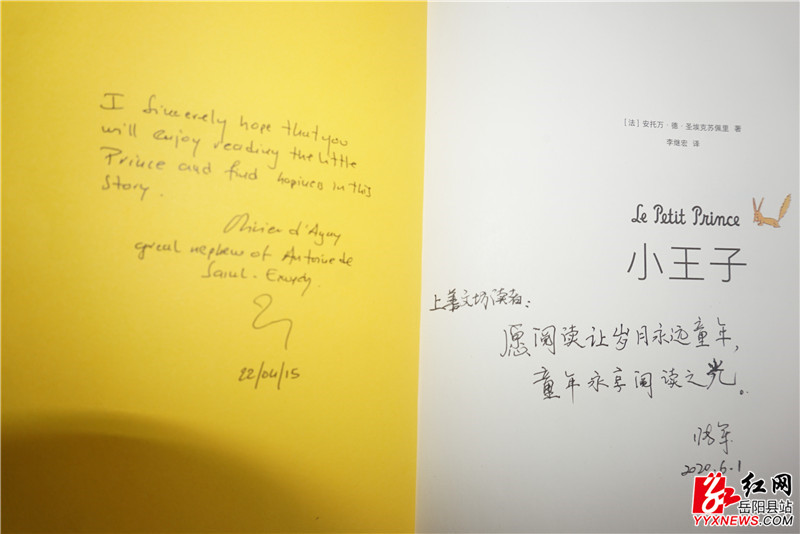 I sincerely hope that you
will enjoy reading the little
Prince and find hapiness in this
Story.
Olivier d'Agay
great nephew of Antoine de
Saint-Exupéry
22/04/15
[法] 安托万·德·圣埃克苏佩里 著
李继宏 译
Le Petit Prince
小王子
上善文坊读者：
愿阅读让岁月永远童年，
童年永享阅读之光。
2020.6.1
红网
岳阳县站
YYXNEWS.COM